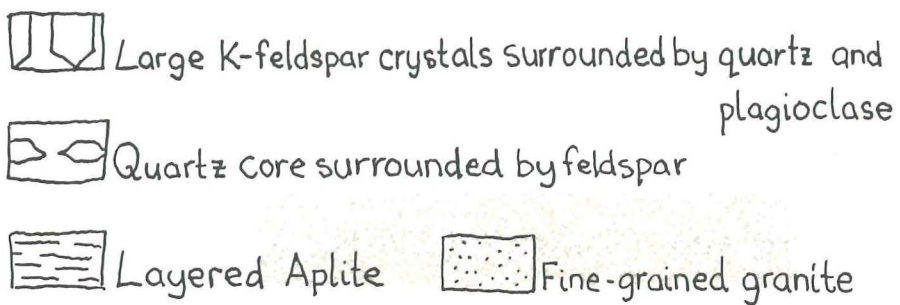 Large K-feldspar crystals surrounded by quartz and
plagioclase
Quartz core surrounded by feldspar
Layered Aplite Fine-grained granite